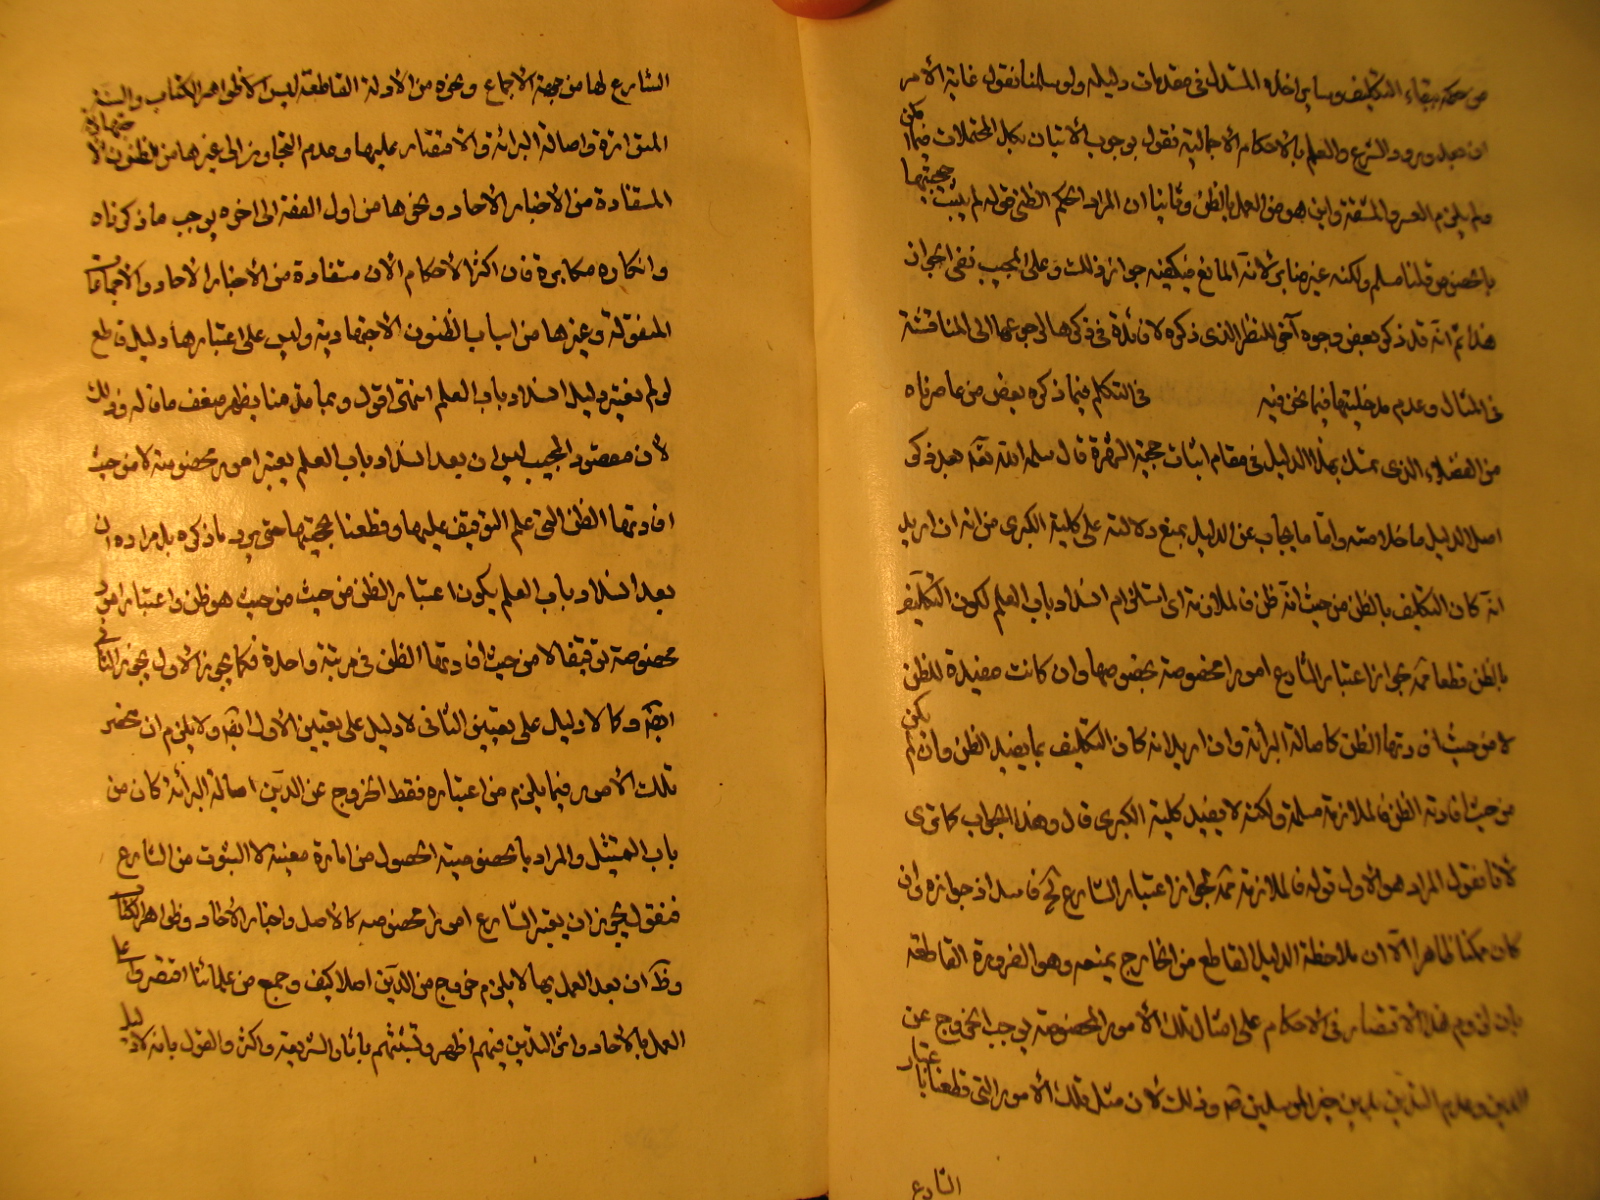 من حكم ببقاء التكليف وساير اخذه المستدل في مقدمات دليله ولو سلمنا نقول غاية الامر
ورود الشرع والعلم بالاحكام الاجمالية فنقول بوجوب الاتيان بكل المحتملات مما امكن
ولم يلزم العسر والمشقة واين هو من العمل بالظن وثانيا ان المراد بالحكم الظني قوله لم يثبت حجيتها
بالخصوص قلنا مسلم ولكنه غير ضاير لانه المانع فيكفيه جواز ذلك وعلى المجيب نفي الجواز
هذا ثم انه قد ذكر بعض وجوه آخر للنظر الذي ذكره لا فائدة في ذكرها لرجوعها الى المناقشة
في المثال وعدم مدخليتها فيما نحن فيه في التكلم فيما ذكره بعض من عاصرناه
من الفضلاء الذي تمسك بهذا الدليل في مقام اثبات حجية الشهرة قال سلمه الله تعه بعد ذكر
اصل الدليل ما خلاصته واما ما يجاب عن الدليل بمنع دلالته على كلية الكبرى من انه ان اريد
انه كان التكليف بالظن من حيث انه ظن فالملازمة اي استلزام انسداد باب العلم لكون التكليف
بالظن قطعا ممه لجواز اعتبار الشارع امورا مخصوصة بخصوصها وان كانت مفيدة للظن
لا من حيث افادتها الظن كاصالة البرائة وان اريد انه كان التكليف بما يفيد الظن وان لم يكن
من حيث افادته الظن فالملازمة مسلمة ولكنه لا يفيد كلية الكبرى قال وهذا الجواب كما ترى
لانا نقول المراد هو الاول قوله فالملازمة ممه لجواز اعتبار الشارع الخ فاسد اذ جوازه وان
كان ممكنا ظاهرا الا ان ملاحظة الدليل القاطع من الخارج يمنعه وهو الضرورة القاطعة
بان لزوم هذا الاقتصار في الاحكام على امثال تلك الامور المخصوصة يوجب الخروج عن
الدين وعدم التدين بدين خير المرسلين صه وذلك لان مثل تلك الامور التي قطعنا باعتبار
الشارع
الشارع لها من جهة الاجماع ونحوه من الادلة القاطعة ليس الا ظواهر الكتاب والسنة
المتواترة واصالة البرائة والاقتصار عليها وعدم التجاوز الى غيرها من الظنون الاجتهادية
المستفادة من الاخبار الاحاد ونحوها من اول الفقه الى اخره يوجب ما ذكرناه
وانكاره مكابرة فان اكثر الاحكام الان مستفادة من الاخبار الاحاد والاجماعات
المنقولة وغيرها من اسباب الظنون الاجتهادية وليس على اعتبارها دليل قاطع
لو لم نعتبر دليل انسداد باب العلم انتهى اقول وبما قدمنا يظهر ضعف ما قاله وذلك
لان مقصود المجيب ليس ان بعد انسداد باب العلم يعتبر امور مخصوصة لا من حيث
افادتها الظن التي علم التوقيف عليها وقطعنا بحجيتها حتى يرد ما ذكره بل مراده ان
بعد انسداد باب العلم يكون اعتبار الظن من حيث من حيث هو ظن واعتبار امور
مخصوصة توقيفا لا من حيث افادتها الظن في مرتبة واحدة فكما يجوز الاول يجوز الثاني
ايضه وكما لا دليل على تعيين الثاني لا دليل على تعيين الاول ايضه ولا يلزم ان تنحصر
تلك الامور فيما يلزم من اعتباره فقط الخروج عن الدين اصالة البرائة كان من
باب التمثيل والمراد بالخصوصية الحصول من امارة معينة لا الثبوت من الشارع
فنقول يجوز ان يعتبر الشارع امورا مخصوصه كالاصل واخبار الاحاد وظواهر الكتاب
وظه ان بعد العمل بها لا يلزم خروج من الدين اصلا كيف وجمع من علمائنا اقتصروا على
العمل بالاحاد وامر التدين فيهم اظهر وتشبثهم باثار الشريعة واكثر والقول بانه لا دليل